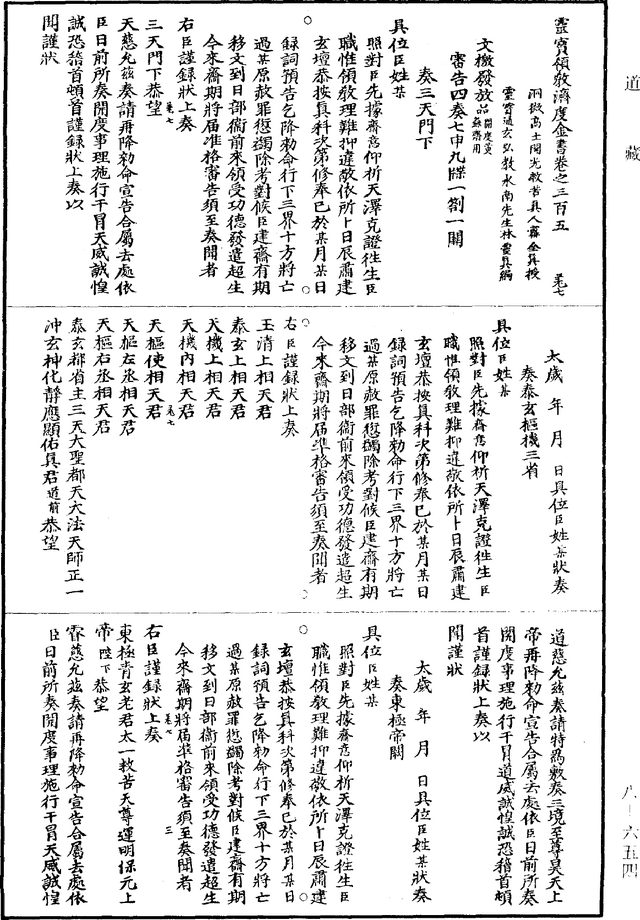 道藏
靈寶領教濟度金書卷之三百五 夙七
洞微高士開光救苦真人甯全真授
靈寶通玄弘教水南先生林靈真編
文檄發放品 開度黃籙齋用
審告四奏七申九牒一劄一關
奏三天門下
具位臣姓某
照對臣先據齋意仰祈天澤克證徃生臣
職惟領教理難抑違敬依所卜日辰肅建
玄壇恭按真科次第修奉已於某月某日
録詞預告乞降勑命行下三界十方將亡
過某原赦罪愆蠲除考對候臣建齋有期
移文到日部衛前來領受功德發遣超生
今來齋期將届準格審告須至奏聞者
右臣謹録狀上奏
三天門下恭望
天慈允兹奏請再降勑命宣告合屬去處依
臣日前所奏開度事理施行干冒天威誠惶
誠恐稽首頓首謹録狀上奏以
聞謹狀
太歲 年 月 日具位臣姓某狀奏
奏泰玄樞機三省
具位臣姓某
照對臣先據齋意仰祈天澤克證徃生臣
職惟領教理難抑違敬依所卜日辰肅建
玄壇恭按真科次第修奉已於某月某日
録詞預告乞降勑命行下三界十方將亡
過某原赦罪愆蠲除考對候臣建齋有期
移文到日部衛前來領受功德發遣超生
今來齋期將届準格審告須至奏聞者
右臣謹録狀上奏
玉清上相天君
泰玄上相天君
天機上相天君
天機内相天君
天樞使相天君
天樞左丞相天君
天樞右丞相天君
泰玄都省主三天大聖都天大法天師正一
沖玄神化靜應顯佑真君道前恭望
道慈允兹奏請特爲敷奏三境至尊昊天上
帝再降勑命宣告合屬去處依臣日前所奏
開度事理施行干冒道威誠惶誠恐稽首頓
首謹録狀上奏以
聞謹狀
太歲 年 月 日具位臣姓某狀奏
奏東極帝闕
具位臣姓某
照對臣先據齋意仰祈天澤克證徃生臣
職惟領教理難抑違敬依所卜日辰肅建
玄壇恭按真科次第修奉已於某月某日
録詞預告乞降勑命行下三界十方將亡
過某原赦罪愆蠲除考對候臣建齋有期
移文到日部衛前來領受功德發遣超生
今來齋期將届準格審告須至奏聞者
右臣謹録狀上奏
東極青玄老君太一救苦天尊運明保元上
帝陛下恭望
睿慈允兹奏請再降勑命宣告合屬去處依
臣日前所奏開度事理施行干冒天威誠惶
八—六五四